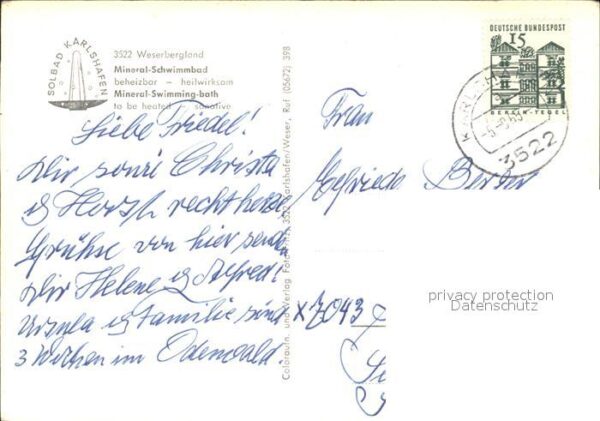 SOLBAD KARLSHAFEN
3522 Weserbergland
Mineral-Schwimmbad
beheizbar – heilwirksam
Mineral-Swimming-bath
to be heated – sanative
Liebe Friedel!
Dir sowie Christa
& Horst recht herzl.
Grüße von hier senden
Dir Helene & Alfred!
Ursula & Familie sind
3 Wochen im Odenwald.
Coloraufn. und Verlag Foto 3522 Karlshafen/Weser, Ruf (05672) 398
DEUTSCHE BUNDESPOST
15
BERLIN-TEGEL
3522
Frau
Elfriede
x 7043
privacy protection
Datenschutz